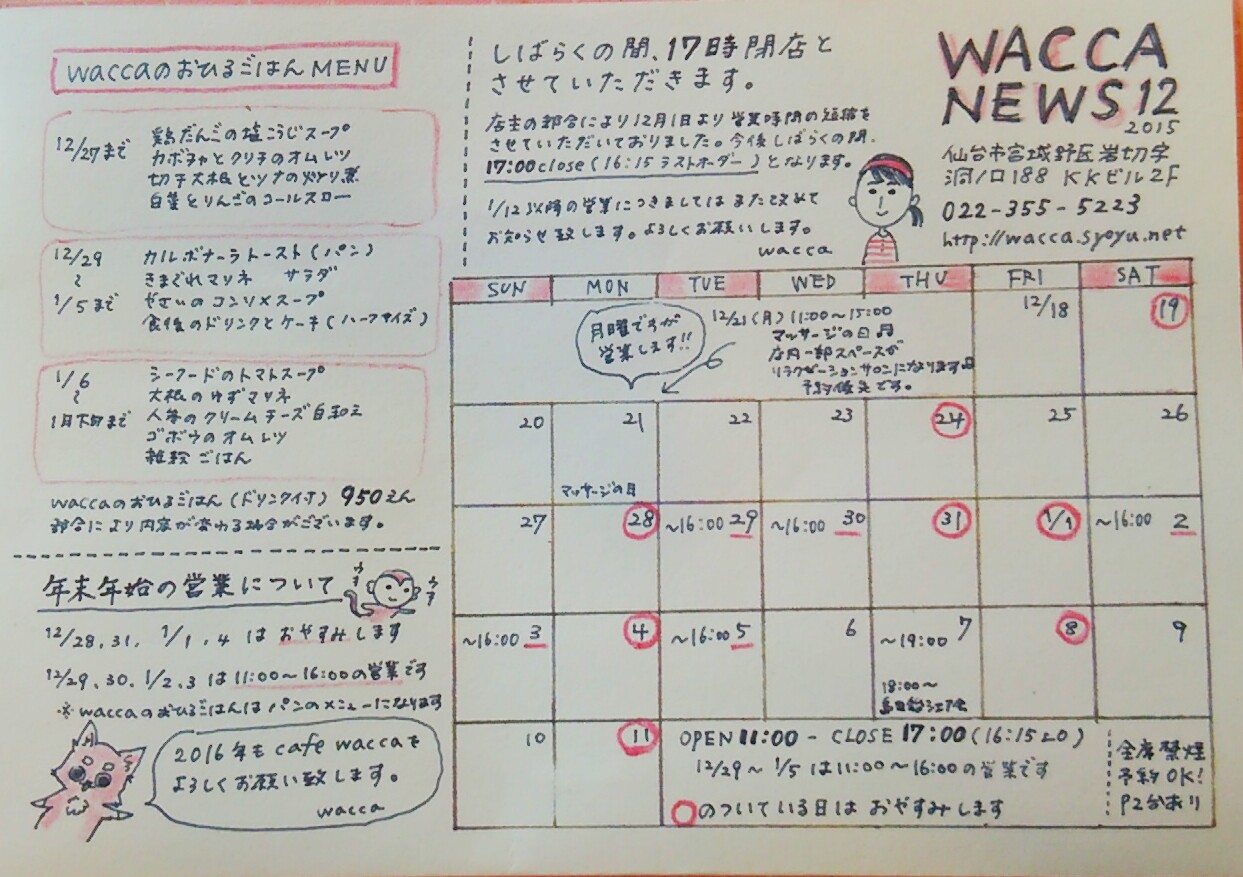 waccaのおひるごはんMENU
12/27まで
鶏だんごの塩こうじスープ
カボチャとクリチのオムレツ
切干大根とツナの炒り煮
白菜とりんごのコールスロー
12/29
〜
1/5まで
カルボナーラトースト(パン)
きまぐれマリネ サラダ
やさいのコンソメスープ
食後のドリンクとケーキ(ハーフサイズ)
1/6
〜
1月下旬まで
シーフードのトマトスープ
大根のゆずマリネ
人参のクリームチーズ白和え
ゴボウのオムレツ
雑穀ごはん
waccaのおひるごはん(ドリンク付) 950えん
都合により内容が変わる場合がございます。
年末年始の営業について
ウキ
ウキ
12/28.31. 1/1.4 は おやすみします
12/29.30.1/2.3 は 11:00〜16:00の営業です
※waccaのおひるごはんはパンのメニューになります
2016年もcafe waccaを
よろしくお願い致します。
wacca
しばらくの間、17時閉店と
させていただきます。
店主の都合により12月1日より営業時間の短縮を
させていただいておりました。今後しばらくの間、
17:00close(16:15ラストオーダー)となります。
1/12以降の営業につきましてはまた改めて
お知らせ致します。よろしくお願いします。
wacca
WACCA
NEWS 12
2015
仙台市宮城野区岩切字
洞ノ口188 KKビル2F
022-355-5223
http://wacca.syoyu.net
SUN MON TUE WED THU FRI SAT
月曜ですが
営業します!!
12/21(月)11:00〜15:00
マッサージの日
店内一部スペースが
リラクゼーションサロンになります♫
予約優先です。
12/18 19
20 21 22 23 24 25 26
マッサージの日
27 28 〜16:00 29 〜16:00 30 31 1/1 〜16:00 2
〜16:00 3 4 〜16:00 5 6 〜19:00 7 8 9
18:00〜
10 11
OPEN 11:00 - CLOSE 17:00(16:15 LO)
12/29〜1/5は11:00〜16:00の営業です
○のついている日は おやすみします
全席禁煙
予約OK!
P2台あり